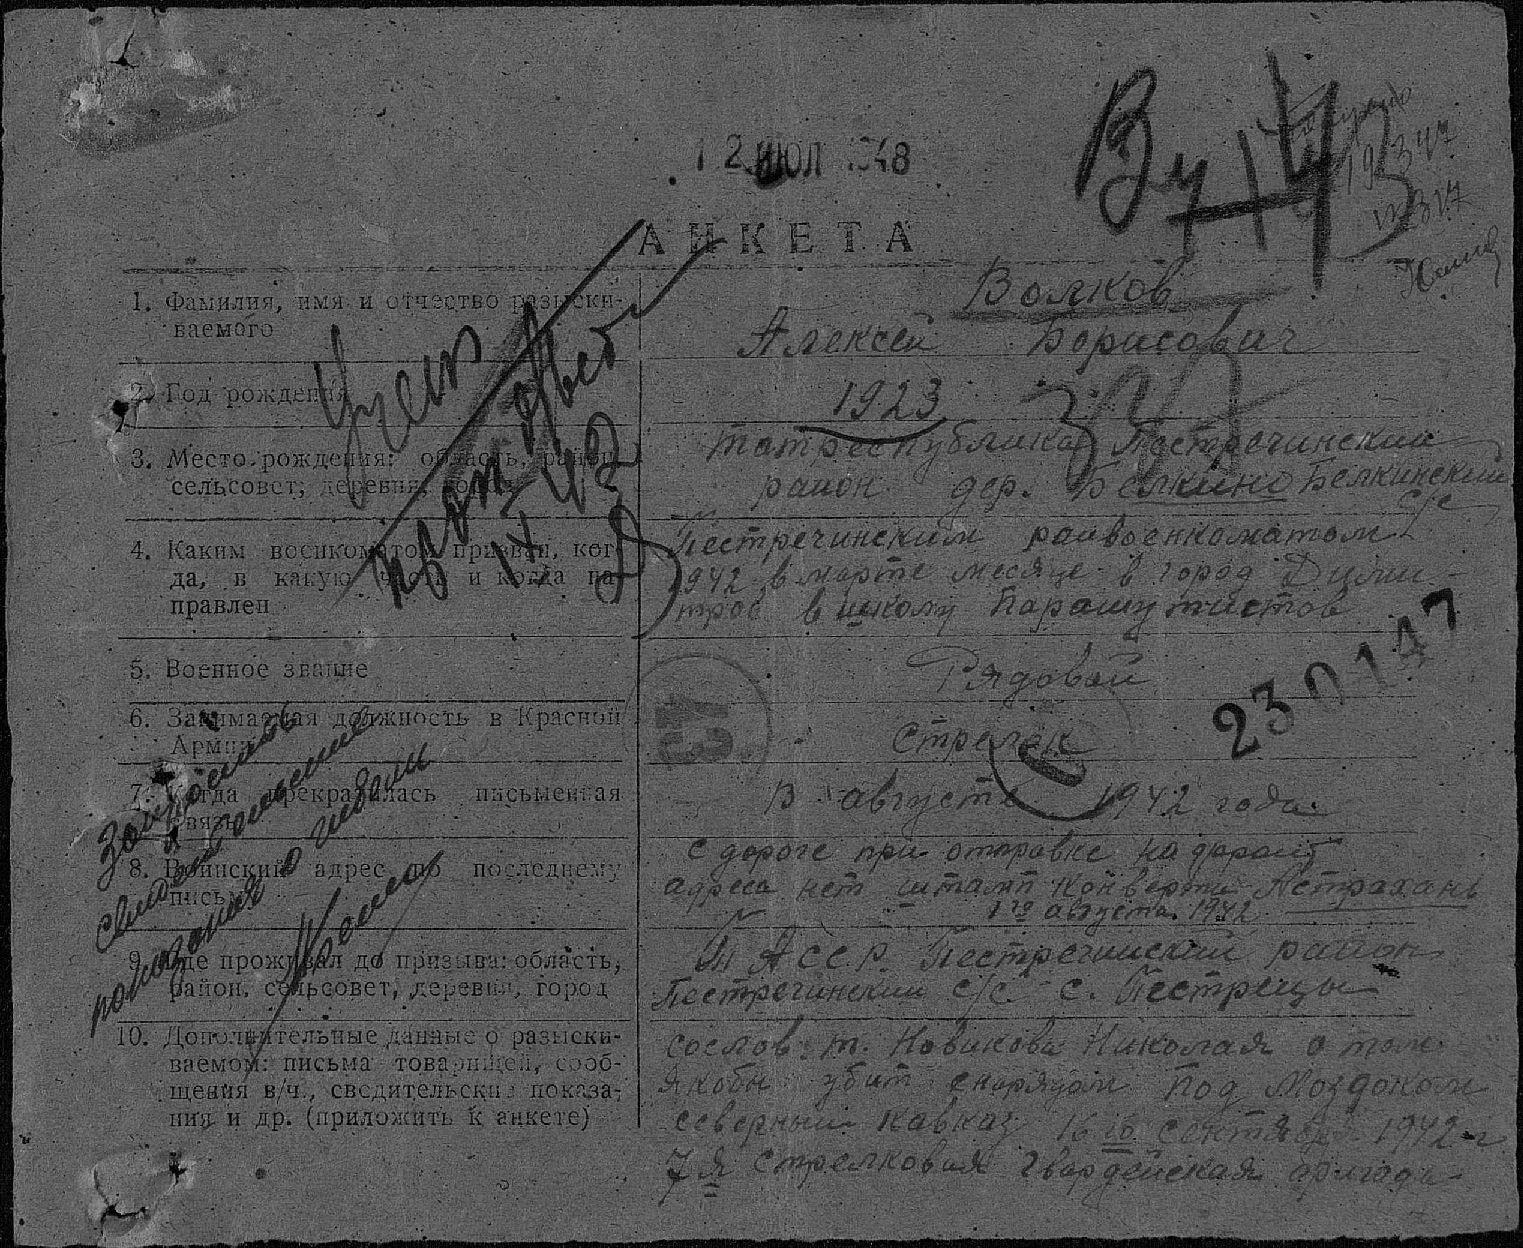 12 ИЮЛ 1948
АНКЕТА
1. Фамилия, имя и отчество разыски-
ваемого
Волков
Алексей Борисович
2. Год рождения
1923
3. Место рождения: область, район,
сельсовет, деревня,
Татреспублика Пестречинский
район дер. Белкино Белкинский
с/с
4. Каким военкоматом призван, ког-
да, в какую часть и когда на-
правлен
Пестречинским райвоенкоматом
1942 в марте месяце в город Дими-
тров в школу Парашутистов
5. Военное звание
Рядовой
6. Занимаемая должность в Красной
Армии
Стрелок
230147
43
7. Когда прекратилась письменная
связь
В августе 1942 года.
8. Воинский адрес по последнему
письму
с дороге при отправке на
адреса нет штамп конверта Астрахань
1го августа 1942
9. Где проживал до призыва: область,
район, сельсовет, деревня, город
Т АССР. Пестречинский район
Пестречинский с/с с. Пестрецы
10. Дополнительные данные о разыски-
ваемом: письма товарищей, сооб-
щения в/ч., сведительские показа-
ния и др. (приложить к анкете)
со слов т. Новикова Николая о том
якобы убит снарядом под Моздоком
северный Кавказ 16го сентября 1942 г
7я стрелковая гвардейская бригада
Учтен
проп
IX 42